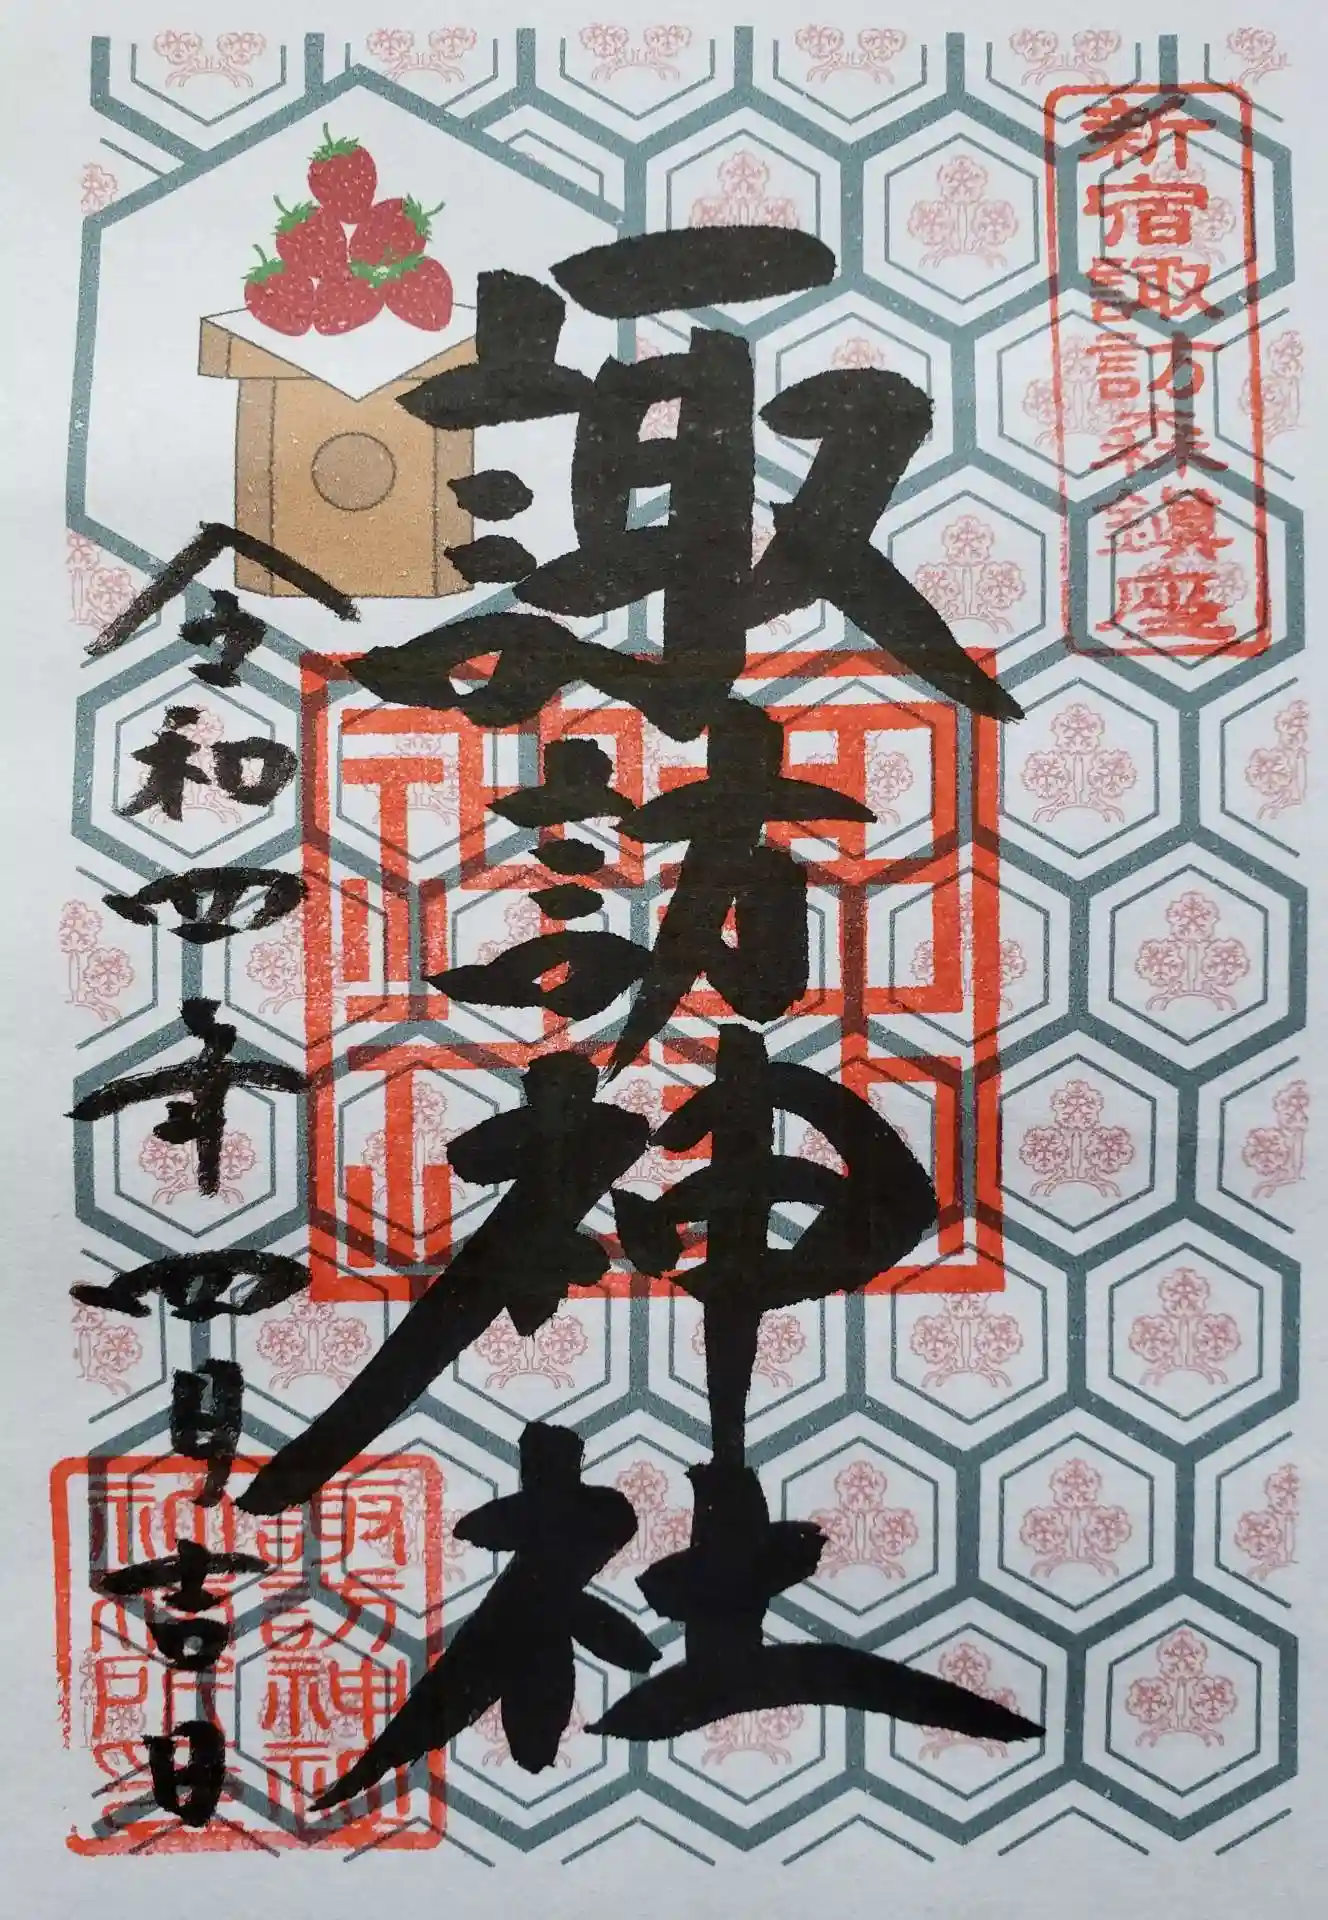 新宿諏訪森鎮座
諏訪神社
令和四年四月吉日
諏訪神社